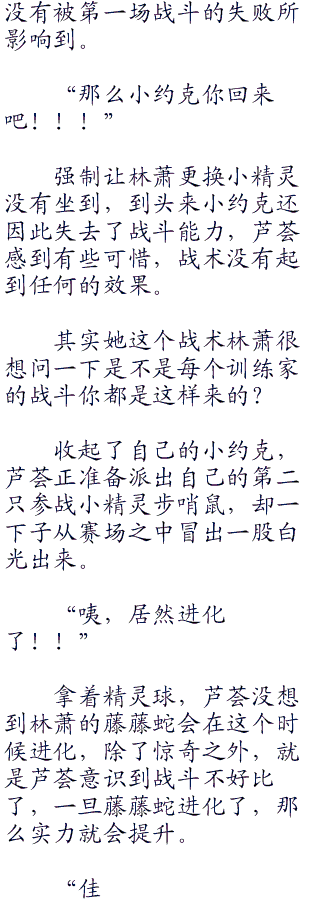 没有被第一场战斗的失败所
影响到。
“那么小约克你回来
吧！！！”
强制让林萧更换小精灵
没有坐到，到头来小约克还
因此失去了战斗能力，芦荟
感到有些可惜，战术没有起
到任何的效果。
其实她这个战术林萧很
想问一下是不是每个训练家
的战斗你都是这样来的？
收起了自己的小约克，
芦荟正准备派出自己的第二
只参战小精灵步哨鼠，却一
下子从赛场之中冒出一股白
光出来。
“咦，居然进化
了！！”
拿着精灵球，芦荟没想
到林萧的藤藤蛇会在这个时
候进化，除了惊奇之外，就
是芦荟意识到战斗不好比
了，一旦藤藤蛇进化了，那
么实力就会提升。
“佳